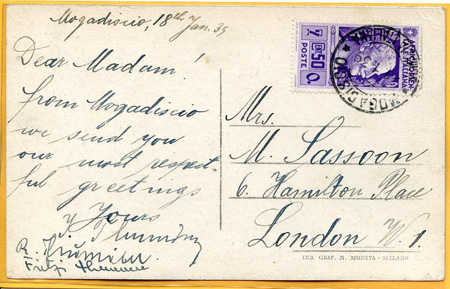 Mogadiscio, 18th Jan. 39
Dear Madam!
from Mogadiscio
we send you
our most respect
ful greetings
Yours
R.
Fritz
C. 50
POSTE
MOGADISCIO
Mrs.
M. Sassoon
6. Hamilton Place
London W. 1.
IND. GRAF. N. MONETA - MILANO